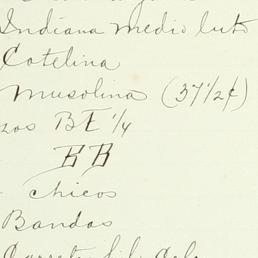 Indiana medio luto
Cotelina
Musolina (37 1/2¢)
zos BE 1/4
BB
chicos
Bandas